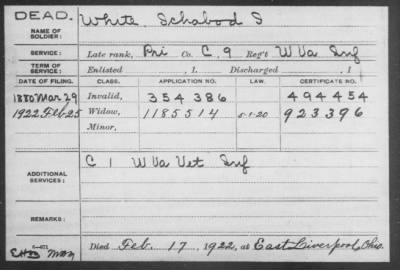 DEAD. White, Schabod S
NAME OF SOLDIER:
SERVICE: Late rank, Pri Co. C, 9 Reg't W Va Inf
TERM OF SERVICE: Enlisted , 1 . Discharged , 1
DATE OF FILING. CLASS. APPLICATION NO. LAW. CERTIFICATE NO.
1880 Mar 29 Invalid, 354386 494454
1922 Feb 25 Widow, 1185514 5-1-20 923396
Minor,
C 1 W Va Vet Inf
ADDITIONAL SERVICES:
REMARKS:
Died Feb. 17, 1922, at East Liverpool, Ohio.